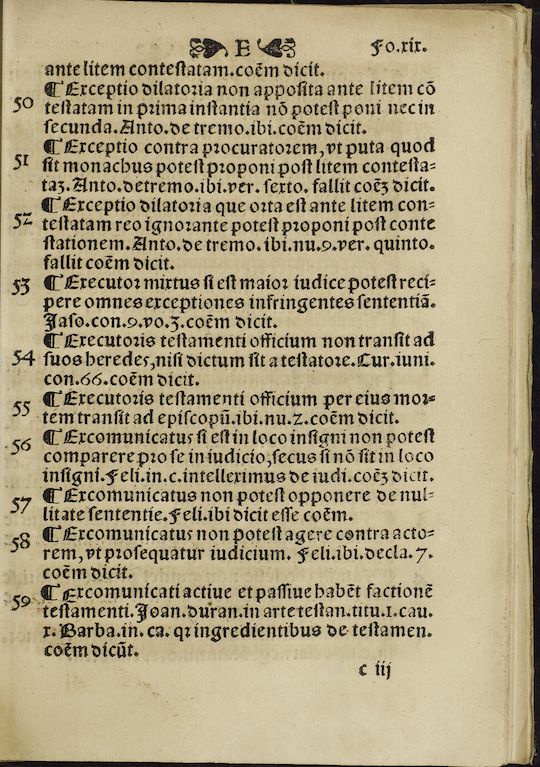 E Fo.xix.
ante litem contestatam.coẽm dicit.
¶ Exceptio dilatoria non apposita ante litem cõ
50 testatam in prima instantia nõ potest poni nec in
secunda.Anto.de tremo.ibi.coẽm dicit.
¶ Exceptio contra procuratorem,vt puta quod
51 sit monachus potest proponi post litem contesta-
taʒ.Anto.detremo.ibi.ver. sexto. fallit coẽʒ dicit.
¶ Exceptio dilatoria que orta est ante litem con-
52 testatam reo ignorante potest proponi post conte
stationem.Anto.de tremo.ibi.nu.9.ver. quinto.
fallit coẽm dicit.
53 ¶ Executor mixtus si est maior iudice potest reci-
pere omnes exceptiones infringentes sententiã.
Jaso.con.9.vo.3.coẽm dicit.
¶ Executoris testamenti officium non transit ad
54 suos heredes,nisi dictum sit a testatore.Cur.iuni.
con.66.coẽm dicit.
55 ¶ Executoris testamenti officium per eius mor-
tem transit ad episcopũ.ibi.nu.2.coẽm dicit.
56 ¶ Excomunicatus si est in loco insigni non potest
comparere pro se in iudicio,secus si nõ sit in loco
insigni.Feli.in.c.intelleximus de iudi.coẽʒ dicit.
57 ¶ Excomunicatus non potest opponere de nul-
litate sententie.Feli.ibi dicit esse coẽm.
58 ¶ Excomunicatus non potest agere contra acto-
rem,vt prosequatur iudicium. Feli.ibi.decla.7.
coẽm dicit.
59 ¶ Excomunicati actiue et passiue habẽt factionẽ
testamenti.Joan.duran.in arte testan.titu.1.cau.
x.Barba.in. ca. qꝛ ingredientibus de testamen.
coẽm dicũt.
c iij